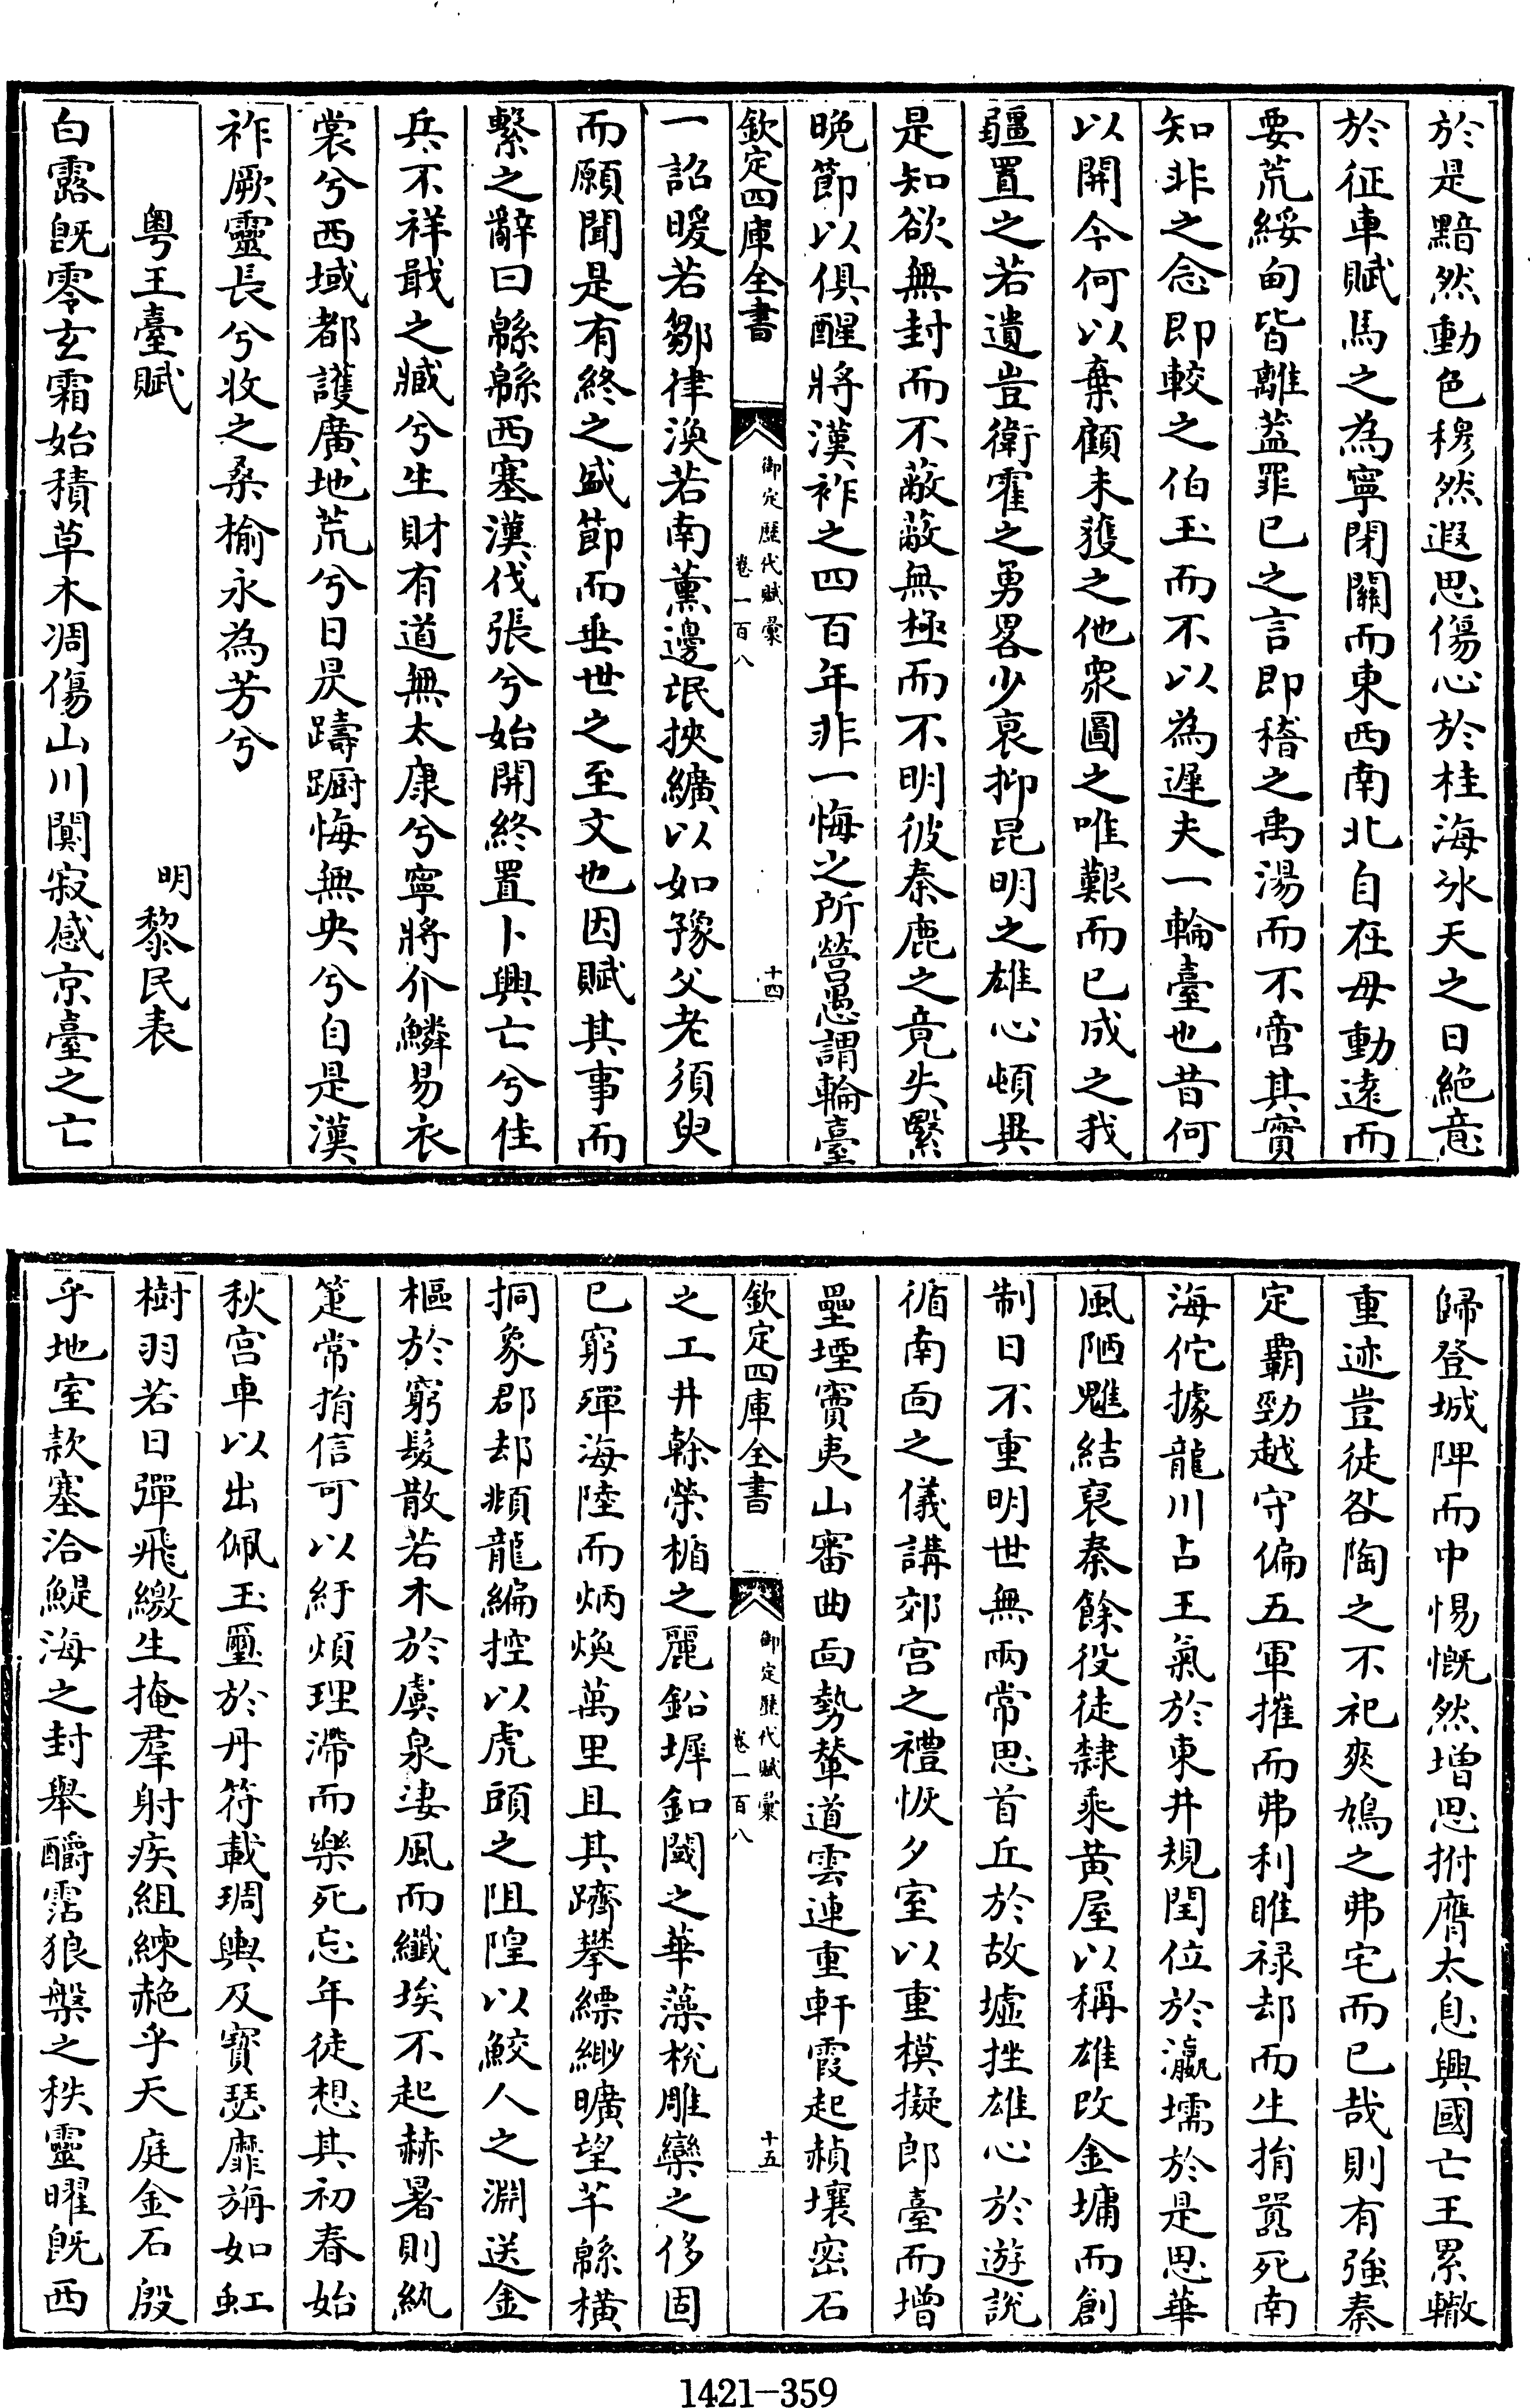 於是黯然動色穆然遐思傷心於桂海冰天之日絶意
於征車賦馬之為寧閉關而東西南北自在毋動遠而
要荒綏甸皆離蓋罪已之言即稽之禹湯而不啻其實
知非之念即較之伯玉而不以為遲夫一輪臺也昔何
以開今何以棄顧未獲之他衆圖之唯艱而已成之我
疆置之若遺豈衛霍之勇畧少衰抑昆明之雄心頓異
是知欲無封而不蔽蔽無極而不明彼秦鹿之竟失繄
晚節以俱醒將漢祚之四百年非一悔之所營愚謂輪臺
欽定四庫全書
御定歷代賦彙
卷一百八
十四
一詔暖若鄒律渙若南薰邊氓挾纊以如豫父老須臾
而願聞是有終之盛節而垂世之至文也因賦其事而
繫之辭曰緜緜西塞漢伐張兮始開終置卜興亡兮佳
兵不祥戢之臧兮生財有道無太康兮寧將介鱗易衣
裳兮西域都護廣地荒兮日昃躊躕悔無央兮自是漢
祚厥靈長兮收之桑榆永為芳兮
粵王臺賦
明
黎民表
白露旣零玄霜始積草木凋傷山川闃寂感京臺之亡
歸登城陴而中惕慨然增思拊膺太息興國亡王累轍
重迹豈徒咎陶之不祀爽鳩之弗宅而已哉則有強秦
定覇勁越守偏五軍摧而弗利睢禄却而生捐嚣死南
海佗據龍川占王氣於東井規閏位於瀛壖於是思華
風陋魋結裒秦餘役徒隸乘黃屋以稱雄改金墉而創
制日不重明世無兩常思首丘於故墟挫雄心於遊説
循南面之儀講郊宫之禮恢夕室以重模擬郎臺而增
壘堙賣夷山審曲面勢輦道雲連重軒霞起赬壤密石
欽定四庫全書
御定歷代賦彙
卷一百八
十五
之工井榦榮楯之麗鉛墀釦閾之華藻梲雕欒之侈固
已窮殫海陸而炳煥萬里且其躋攀縹緲曠望芊緜横
挏象郡却頫龍編控以虎頭之阻隍以鮫人之淵送金
樞於窮髮散若木於虞泉淒風而纖埃不起赫暑則紈
箑常捐信可以紓煩理滯而樂死忘年徒想其初春始
秋宫車以出佩玉璽於丹符載琱輿及寳瑟靡旃如虹
樹羽若日彈飛繳生掩羣射疾組練赩乎天庭金石殷
乎地室款塞洽鯷海之封舉酹霑狼槃之秩靈曜旣西
1421-359